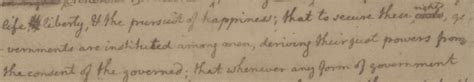 life & liberty, & the pursuit of happiness; that to secure these rights, go
vernments are instituted among men, deriving their just powers from
the consent of the governed; that whenever any form of government